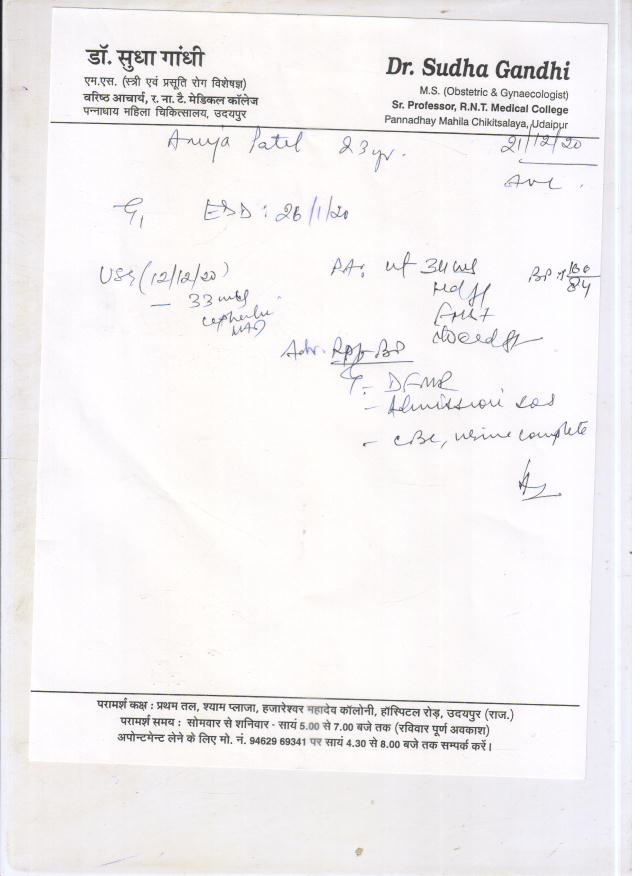 डॉ. सुधा गांधी
एम.एस. (स्त्री एवं प्रसूति रोग विशेषज्ञ)
वरिष्ठ आचार्य, र. ना. टै. मेडिकल कॉलेज
पन्नाधाय महिला चिकित्सालय, उदयपुर
Dr. Sudha Gandhi
M.S. (Obstetric & Gynaecologist)
Sr. Professor, R.N.T. Medical College
Pannadhay Mahila Chikitsalaya, Udaipur
Patel 23 yr. 21/12/20
G1 EDD: 26/1/20
USG (12/12/20) PA: ut 34 wks BP
84
- 33 wks
Adv. Rpt BP
- DFMR
- Admission sos
- CBC, urine complete
परामर्श कक्ष : प्रथम तल, श्याम प्लाजा, हजारेश्वर महादेव कॉलोनी, हॉस्पिटल रोड़, उदयपुर (राज.)
परामर्श समय : सोमवार से शनिवार - सायं 5.00 से 7.00 बजे तक (रविवार पूर्ण अवकाश)
अपोन्टमेन्ट लेने के लिए मो. नं. 94629 69341 पर सायं 4.30 से 8.00 बजे तक सम्पर्क करें।